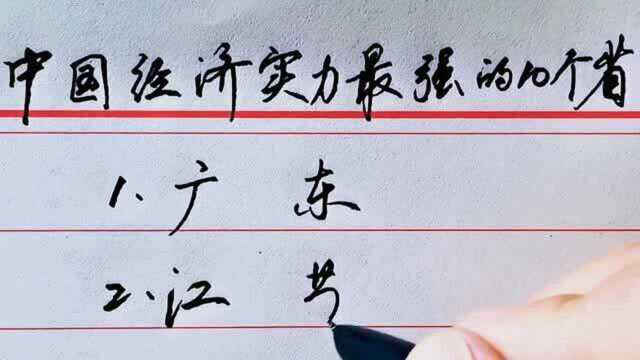 中国经济实力最强的10个省
1、广东
2、江